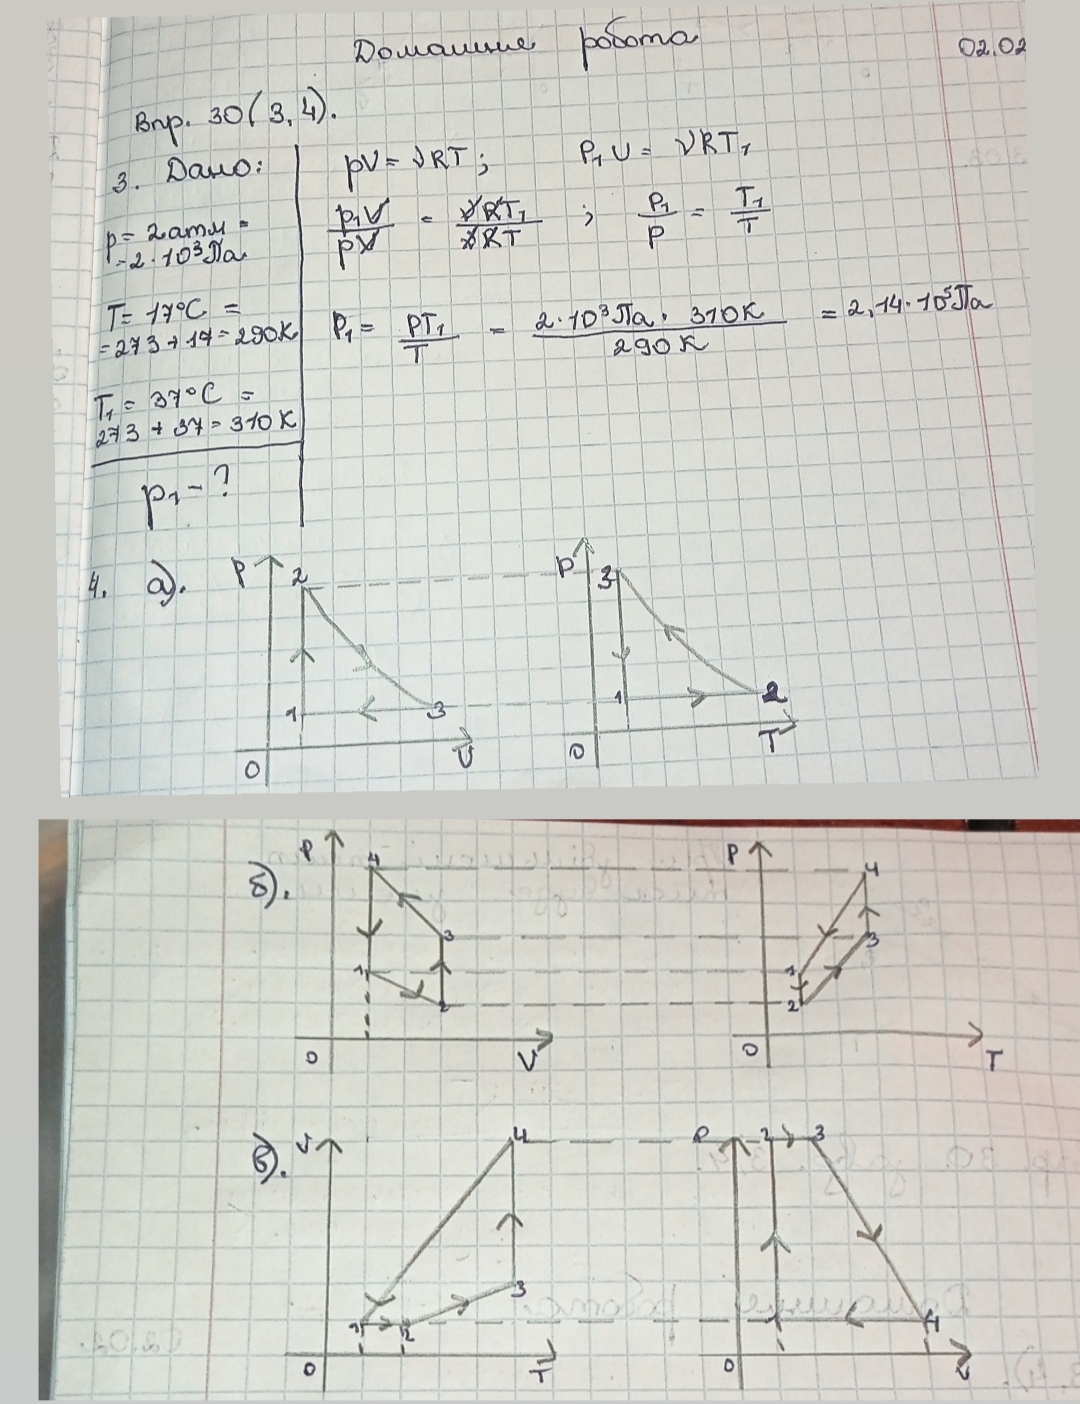 Домашне робота
02.02
Впр. 30(3,4).
3. Дано:
p = 2 атм =
= 2 · 10³ Па
T = 17°C =
= 273 + 17 = 290 K
T₁ = 37°C =
273 + 37 = 310 K
p₁ - ?
pV = νRT ; P₁V = νRT₁
p₁V/pV = νRT₁/νRT ; P₁/P = T₁/T
P₁ = PT₁/T = 2·10³Па · 310K/290K = 2,14·10⁵Па
4. а).
P 2 1 3 0 V
P 3 1 2 0 T
б).
P 4 3 1 2 0 V
P 4 3 1 2 0 T
в).
V 4 3 1 2 0 T
P 2 3 1 4 0 V